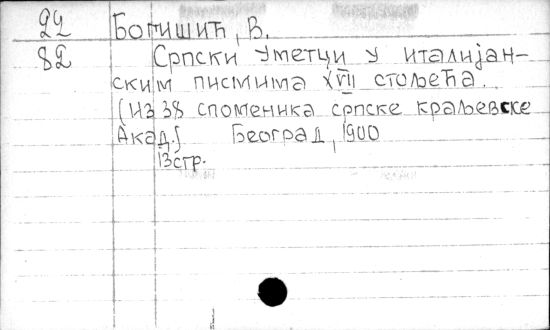 22 Богишић, В.
82 Српски уметци у италијан-
ским писмима XVII столећа.
(Из 38 споменика српске краљевске
Акад.) Београд, 1900
13 стр.